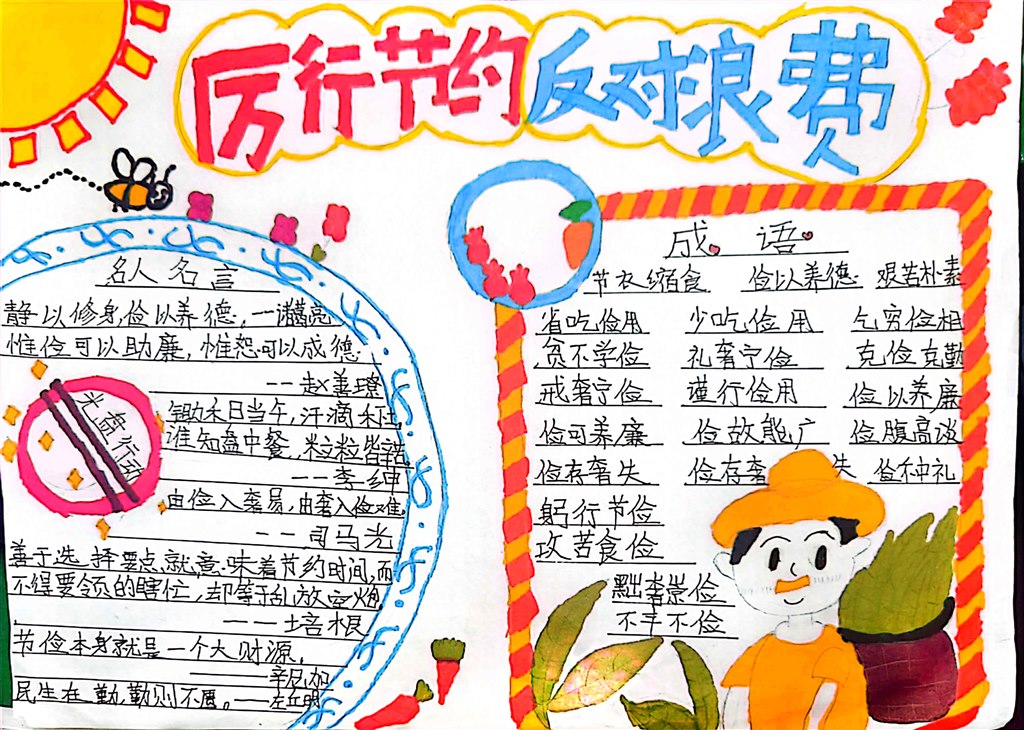 厉行节约 反对浪费
名人名言
静以修身,俭以养德,一诸葛亮
惟俭可以助廉,惟恕可以成德.
——赵善璙
锄禾日当午,汗滴禾下土,
谁知盘中餐,粒粒皆辛苦
——李绅
由俭入奢易,由奢入俭难.
——司马光
善于选择要点就意味着节约时间,而
不得要领的瞎忙,却等于乱放空炮
——培根
节俭本身就是一个大财源,
——辛尼加
民生在勤,勤则不匮.——左丘明
光盘行动
成语
节衣缩食 俭以养德 艰苦朴素
省吃俭用 少吃俭用 乞穷俭相
贪不学俭 礼奢宁俭 克俭克勤
戒奢宁俭 谨行俭用 俭以养廉
俭可养廉 俭故能广 俭腹高谈
俭存奢失 俭存奢失 俭不中礼
躬行节俭
攻苦食俭
黜奢崇俭
不丰不俭